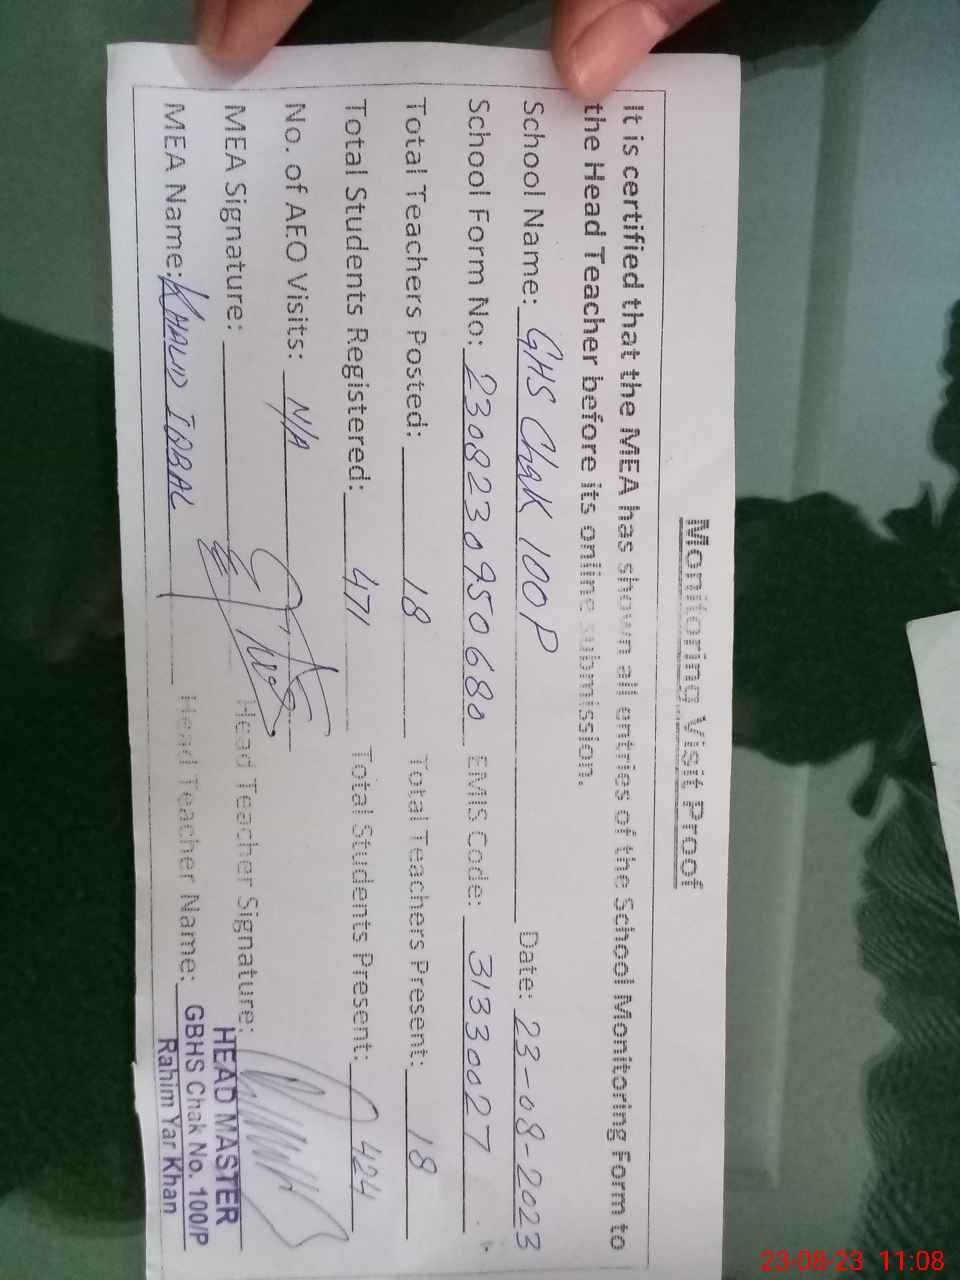 Monitoring Visit Proof
It is certified that the MEA has shown all entries of the School Monitoring Form to
the Head Teacher before its online submission.
School Name: GHS Chak 100P Date: 23-08-2023
School Form No: 230823095068 0 EMIS Code: 31330027
Total Teachers Posted: 18 Total Teachers Present: 18
Total Students Registered: 471 Total Students Present: 424
No. of AEO Visits: N/A
MEA Signature: Head Teacher Signature:
MEA Name: KHALID IQBAL Head Teacher Name:
HEAD MASTER
GBHS Chak No. 100/P
Rahim Yar Khan
23-08-23 11:08